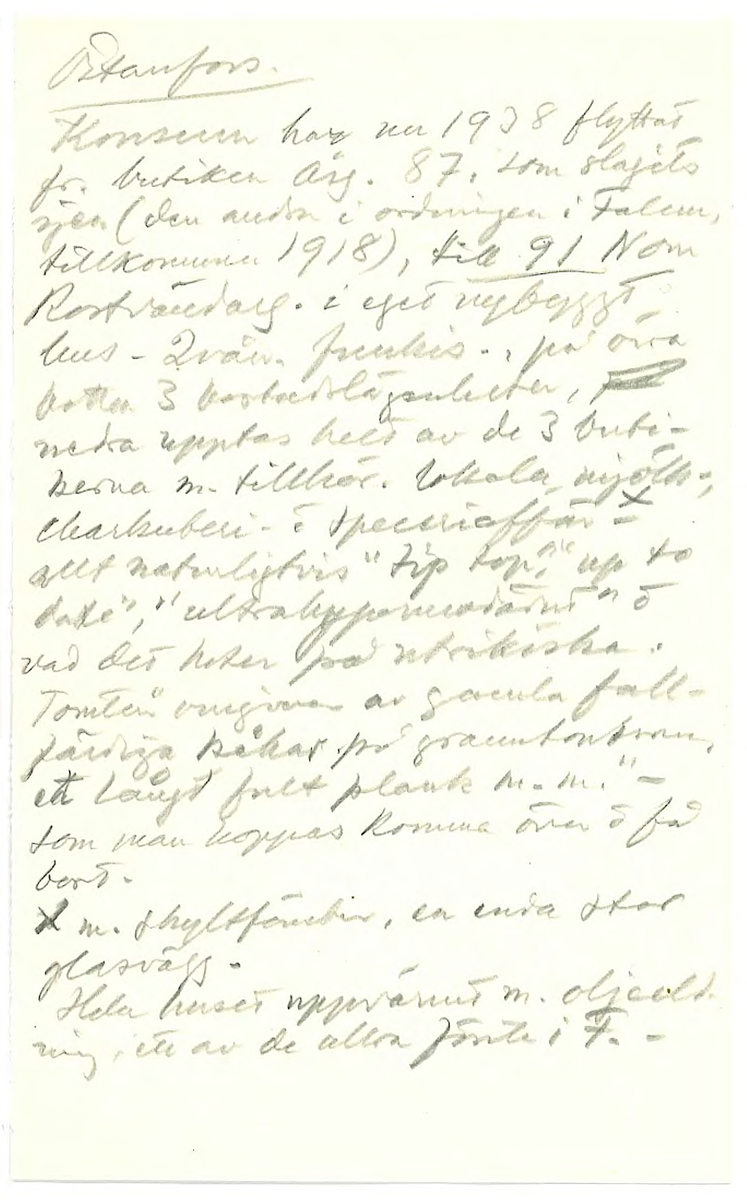 Östanfors.
Konsum har nu 1938 flyttat
fr. butiken Åsg. 87, som
(den andra i ordningen i Falun,
tillkommen 1918), till 91 Norra
i eget nybyggt
hus - 2 vån. funkis -, på övra
botten 3 bostadslägenheter,
nedra upptas helt av de 3 buti-
kerna m. tillhör. lokaler, mjölk-,
charkuberi- o speceriaffär - x
allt naturligtvis "tip top", "up to
date", "ultrahypermodärnt" o
vad det heter på utrikiska.
Tomten omgives av gamla fall-
färdiga kåkar på granntomterna,
ett långt fult plank m. m. -
som man hoppas komma över o få
bort.
x m. skyltfönster, en enda stor
glasvägg -
Hela huset uppvärmt m. oljeeld-
ning, ett av de allra första i F. -